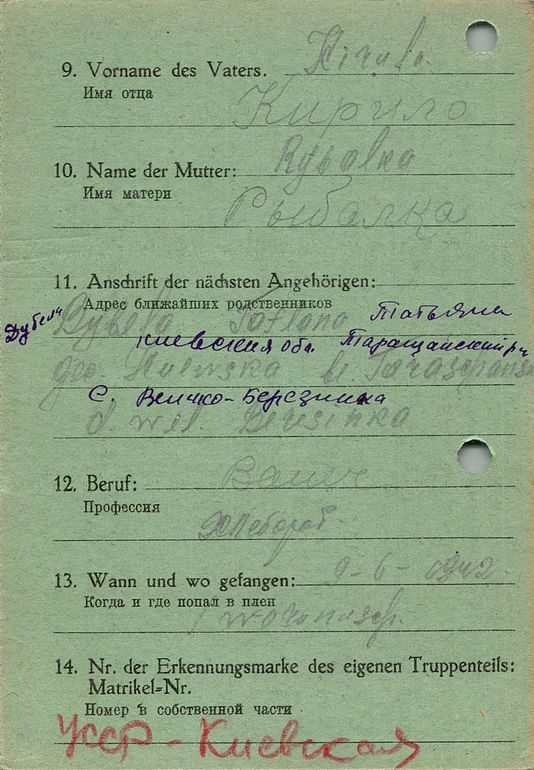 9. Vorname des Vaters. Kirulo.
Имя отца
Кирило
10. Name der Mutter: Rybalka
Имя матери
Рыбалка
11. Anschrift der nächsten Angehörigen:
Адрес ближайших родственников
Татьяна
Киевская обл. Таращанский р-н
gov. Kiewska
С. Велико-Березянка
d. wel. Beresinka
12. Beruf: Bauer
Профессия
Хлебороб
13. Wann und wo gefangen: 9-6-1942.
Когда и где попал в плен
14. Nr. der Erkennungsmarke des eigenen Truppenteils:
Matrikel-Nr.
Номер в собственной части
УССР - Киевская